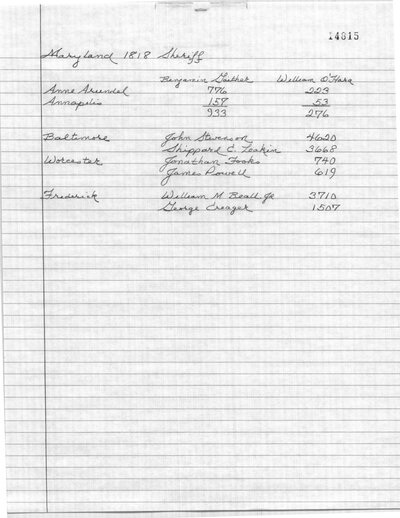 14815
Maryland 1818 Sheriff
Benjamin Gaither William O'Hara
Anne Arundel 776 223
Annapolis 157 53
933 276
Baltimore John Stevenson 4620
Shippard C. Leakin 3668
Worcester Jonathan Fooks 740
James Powell 619
Frederick William M. Beall Jr 3710
George Creager 1507